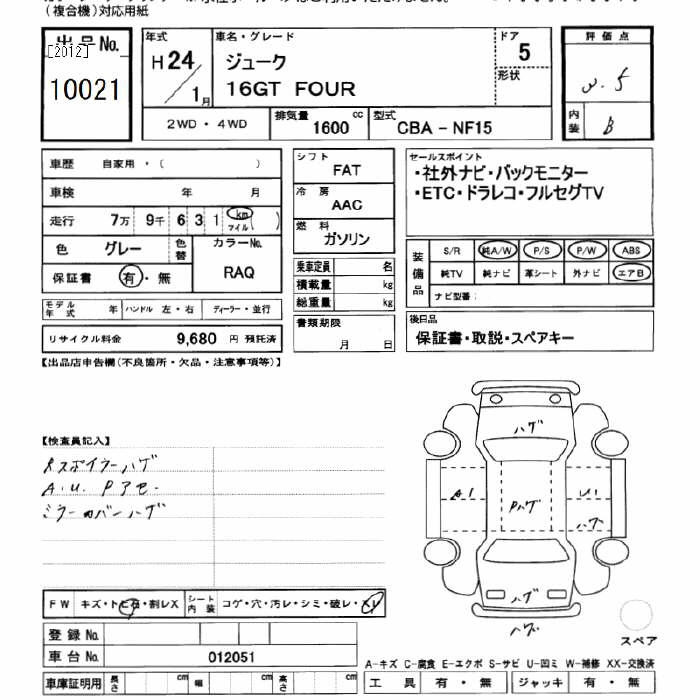 (複合機)対応用紙
出品No.
[2012]
10021
年式
H24/1月
車名・グレード
ジューク
16GT FOUR
ドア
5
形状
評価点
3.5
内装
B
2WD・4WD
排気量
1600 cc
型式
CBA - NF15
車歴 自家用・( )
車検 年 月
走行 7万 9千 6 3 1 km マイル ( )
色 グレー 色替
カラーNo.
RAQ
保証書 有・無
モデル年式 年 ハンドル 左・右 ディーラー・並行
リサイクル料金 9,680 円 預託済
シフト
FAT
冷房
AAC
燃料
ガソリン
乗車定員 名
積載量 kg
総重量 kg
書類期限
月 日
セールスポイント
・社外ナビ・バックモニター
・ETC・ドラレコ・フルセグTV
装備品
S/R 純A/W P/S P/W ABS
純TV 純ナビ 革シート 外ナビ エアB
ナビ型番:
後日品
保証書・取説・スペアキー
【出品店申告欄(不良箇所・欠品・注意事項等)】
【検査員記入】
Rスポイラーハゲ
A.U. Pアセ-
ミラーカバーハゲ
ハゲ
A1
Pハゲ
U1
ハゲ
ハゲ
ハゲ
スペア
FW キズ・トビ石・割レX
シート内装 コゲ・穴・汚レ・シミ・破レ・スレ
登録No.
車台No. 012051
車庫証明用 長さ cm 幅 cm 高さ cm
A-キズ C-腐食 E-エクボ S-サビ U-凹ミ W-補修 XX-交換済
工具 有・無 ジャッキ 有・無